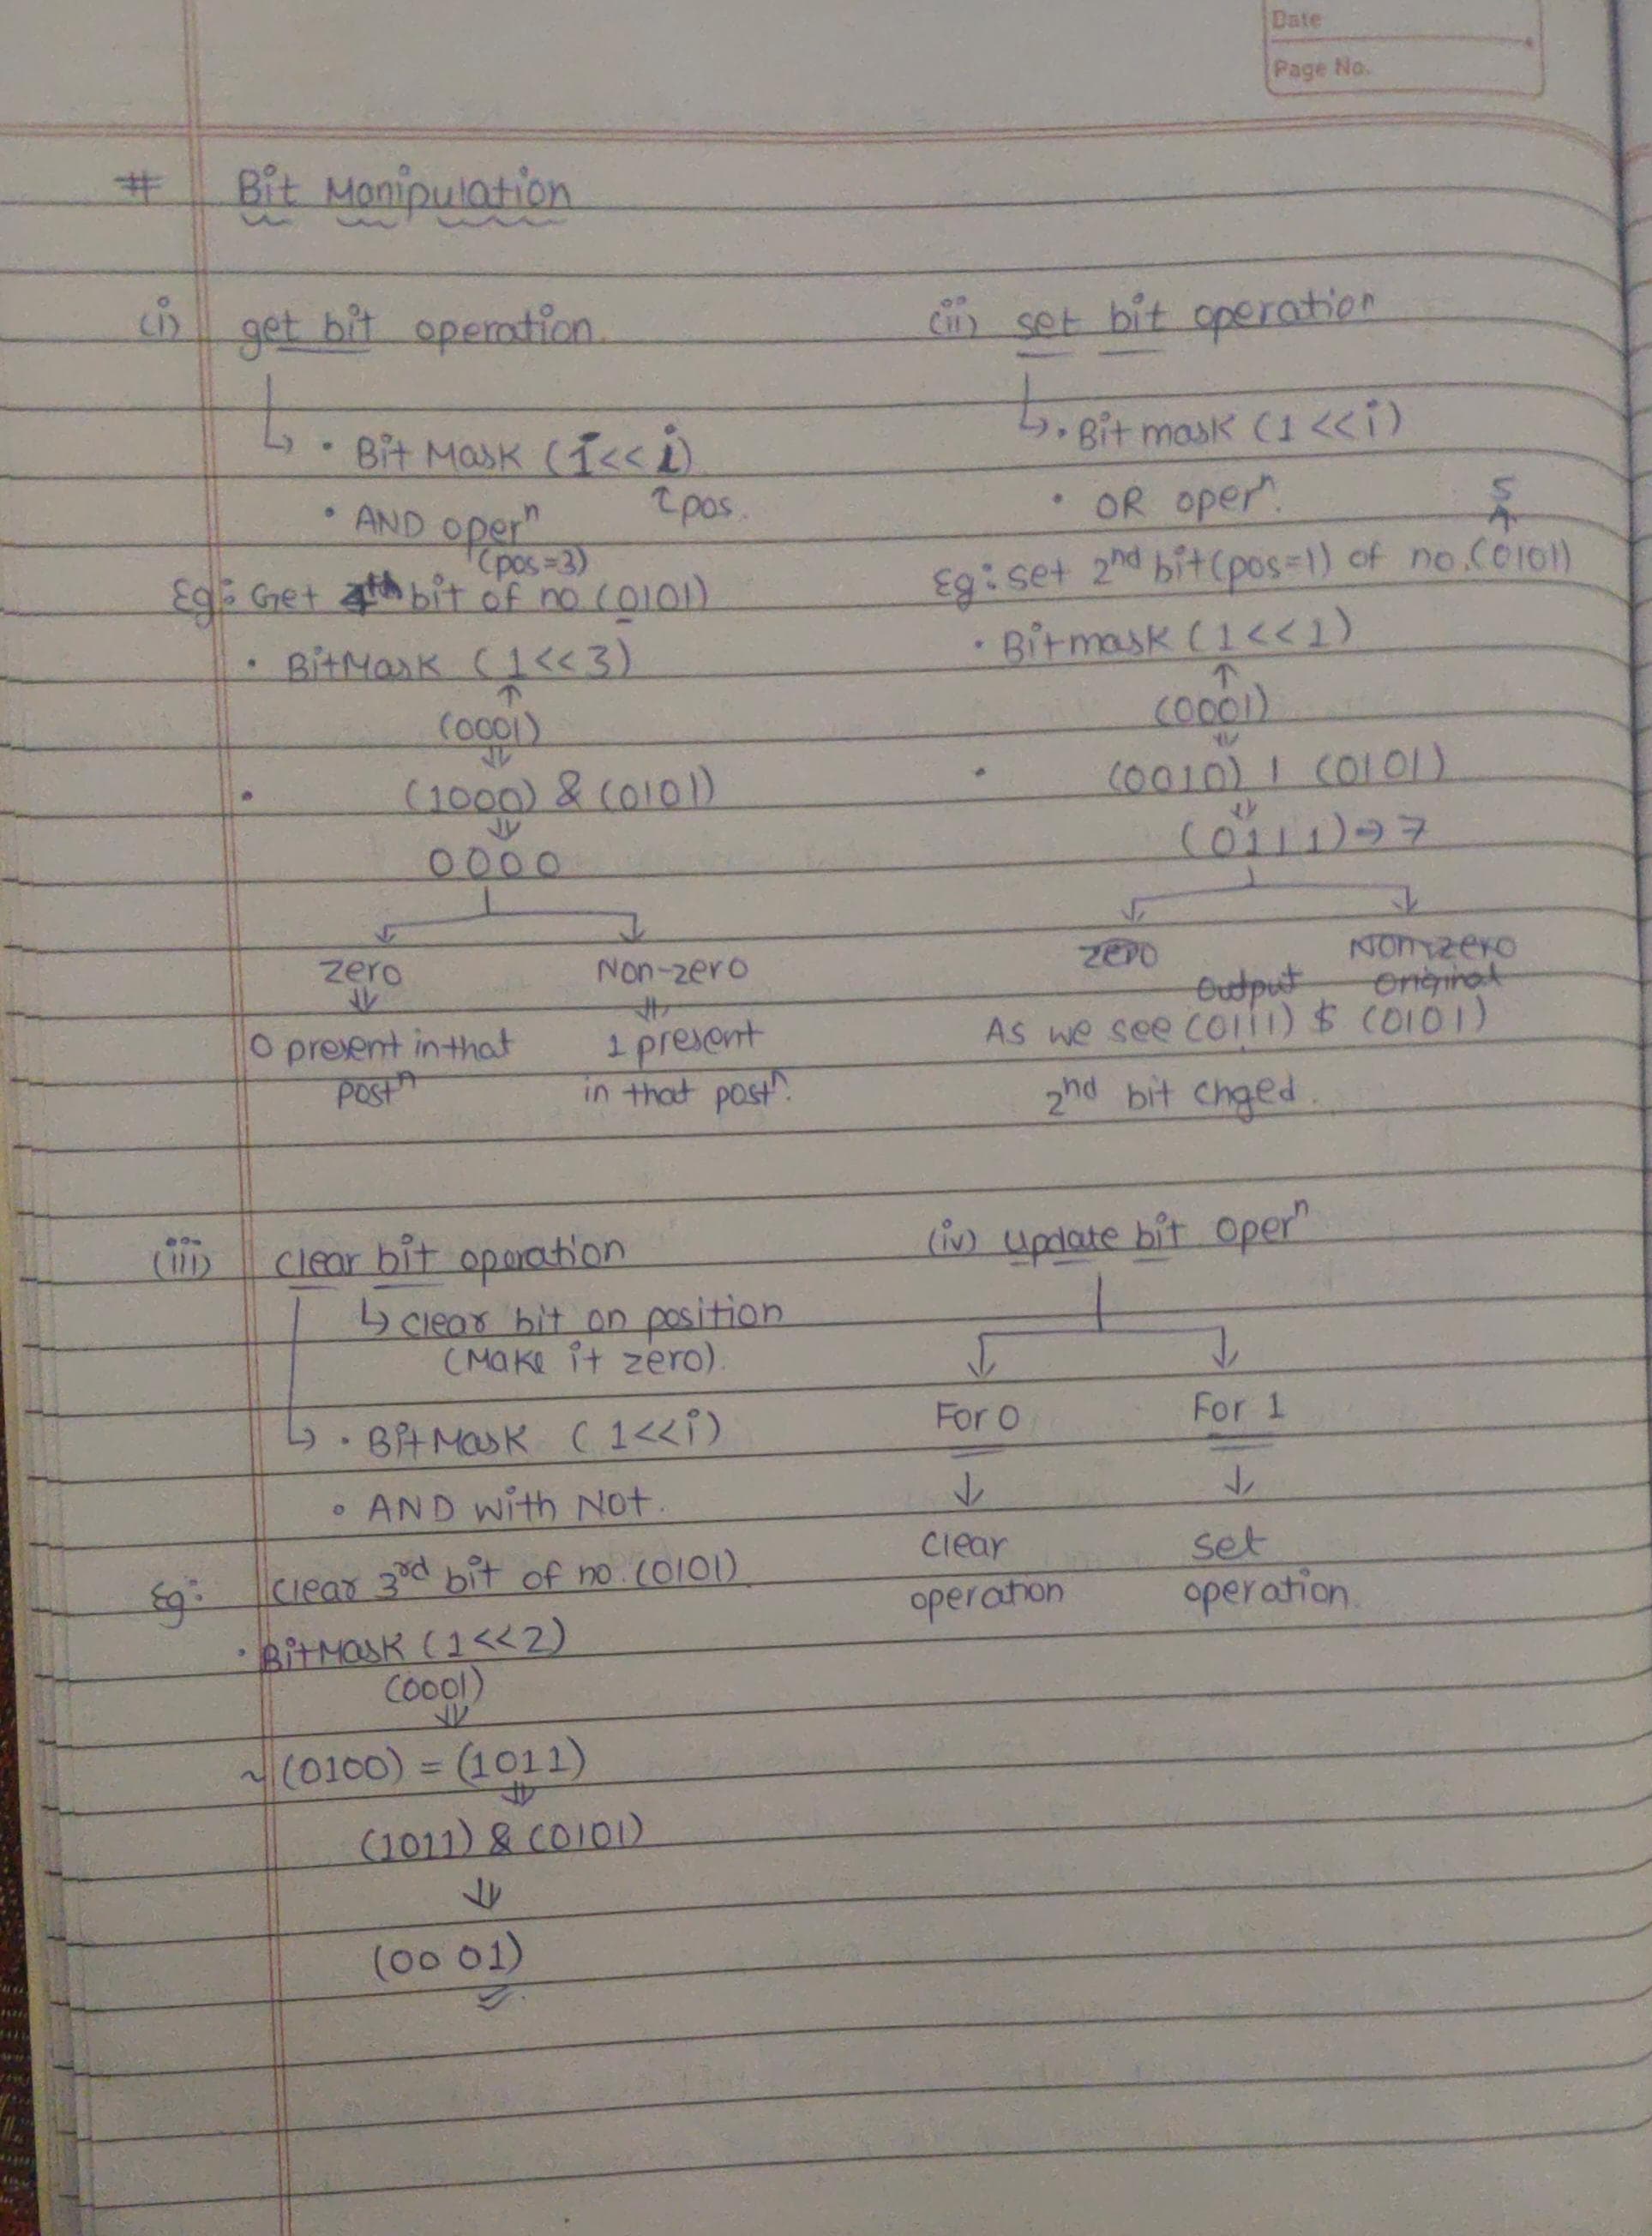 Date
Page No.
# Bit Manipulation
(i) get bit operation
↳ • Bit Mask (1<<i)
↑pos.
• AND operⁿ
(pos=3)
Eg: Get 4th bit of no (0101)
• BitMask (1<<3)
↑
(0001)
⇓
• (1000) & (0101)
⇓
0000
zero Non-zero
⇓ ⇓
0 present in that 1 present
postⁿ in that postⁿ.
(ii) set bit operation
↳ • Bitmask (1<<i)
• OR operⁿ.
5
↑
Eg: set 2nd bit (pos=1) of no. (0101)
• Bitmask (1<<1)
↑
(0001)
⇓
• (0010) | (0101)
⇓
(0111) ⇒ 7
zero Non-zero
Output Original
As we see (0111) $ (0101)
2nd bit chged.
(iii) clear bit operation
↳ clear bit on position
(Make it zero).
↳ • BitMask (1<<i)
• AND with Not.
Eg: clear 3rd bit of no. (0101)
• BitMask (1<<2)
(0001)
⇓
~(0100) = (1011)
⇓
(1011) & (0101)
⇓
(0001)
(iv) Update bit operⁿ
For 0 For 1
↓ ↓
clear set
operation operation.